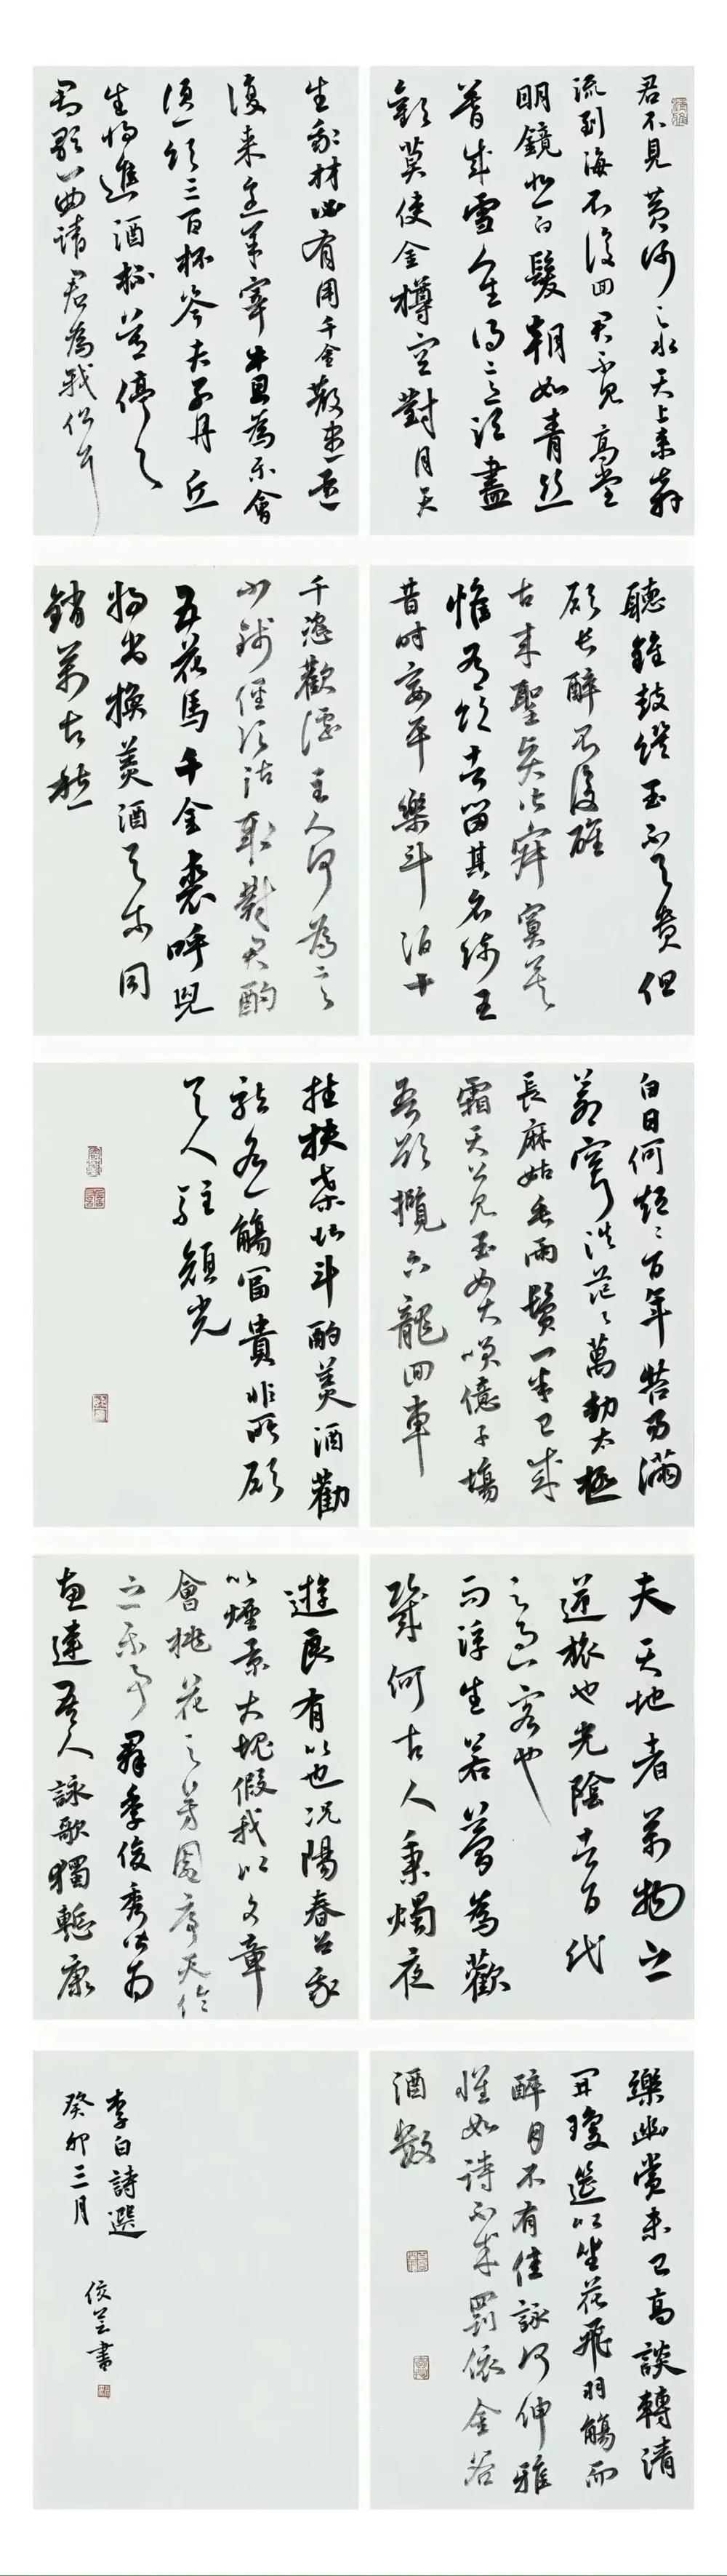 君不見黃河之水天上來奔
流到海不復回君不見高堂
明鏡悲白髮朝如青絲
暮成雪人生得意須盡
歡莫使金樽空對月天
生我材必有用千金散盡還
復来烹羊宰牛且為樂會
須一飲三百杯岑夫子丹丘
生將進酒杯莫停與
君歌一曲請君為我傾耳
聽鐘鼓饌玉不足貴但
願長醉不復醒
古来聖賢皆寂寞
惟有飲者留其名陳王
昔時宴平樂斗酒十
千恣歡謔主人何為言
少錢徑須沽取對君酌
五花馬千金裘呼兒
將出換美酒與爾同
銷萬古愁
白日何短〻百年苦易滿
蒼穹浩茫〻萬劫太極
長麻姑垂兩鬢一半已成
霜天公見玉女大笑億千場
吾欲攬六龍回車
挂扶桑北斗酌美酒勸
龍各一觴富貴非所願
與人駐顏光
夫天地者萬物之
逆旅也光陰者百代
之過客也
而浮生若夢為歡
幾何古人秉燭夜
遊良有以也況陽春召我
以煙景大塊假我以文章
會桃花之芳園序天倫
之樂事群季俊秀皆為
惠連吾人詠歌獨慙康
樂幽賞未已高談轉清
開瓊筵以坐花飛羽觴而
醉月不有佳詠何伸雅
懷如詩不成罰依金谷
酒數
李白詩選
癸卯三月
芝書